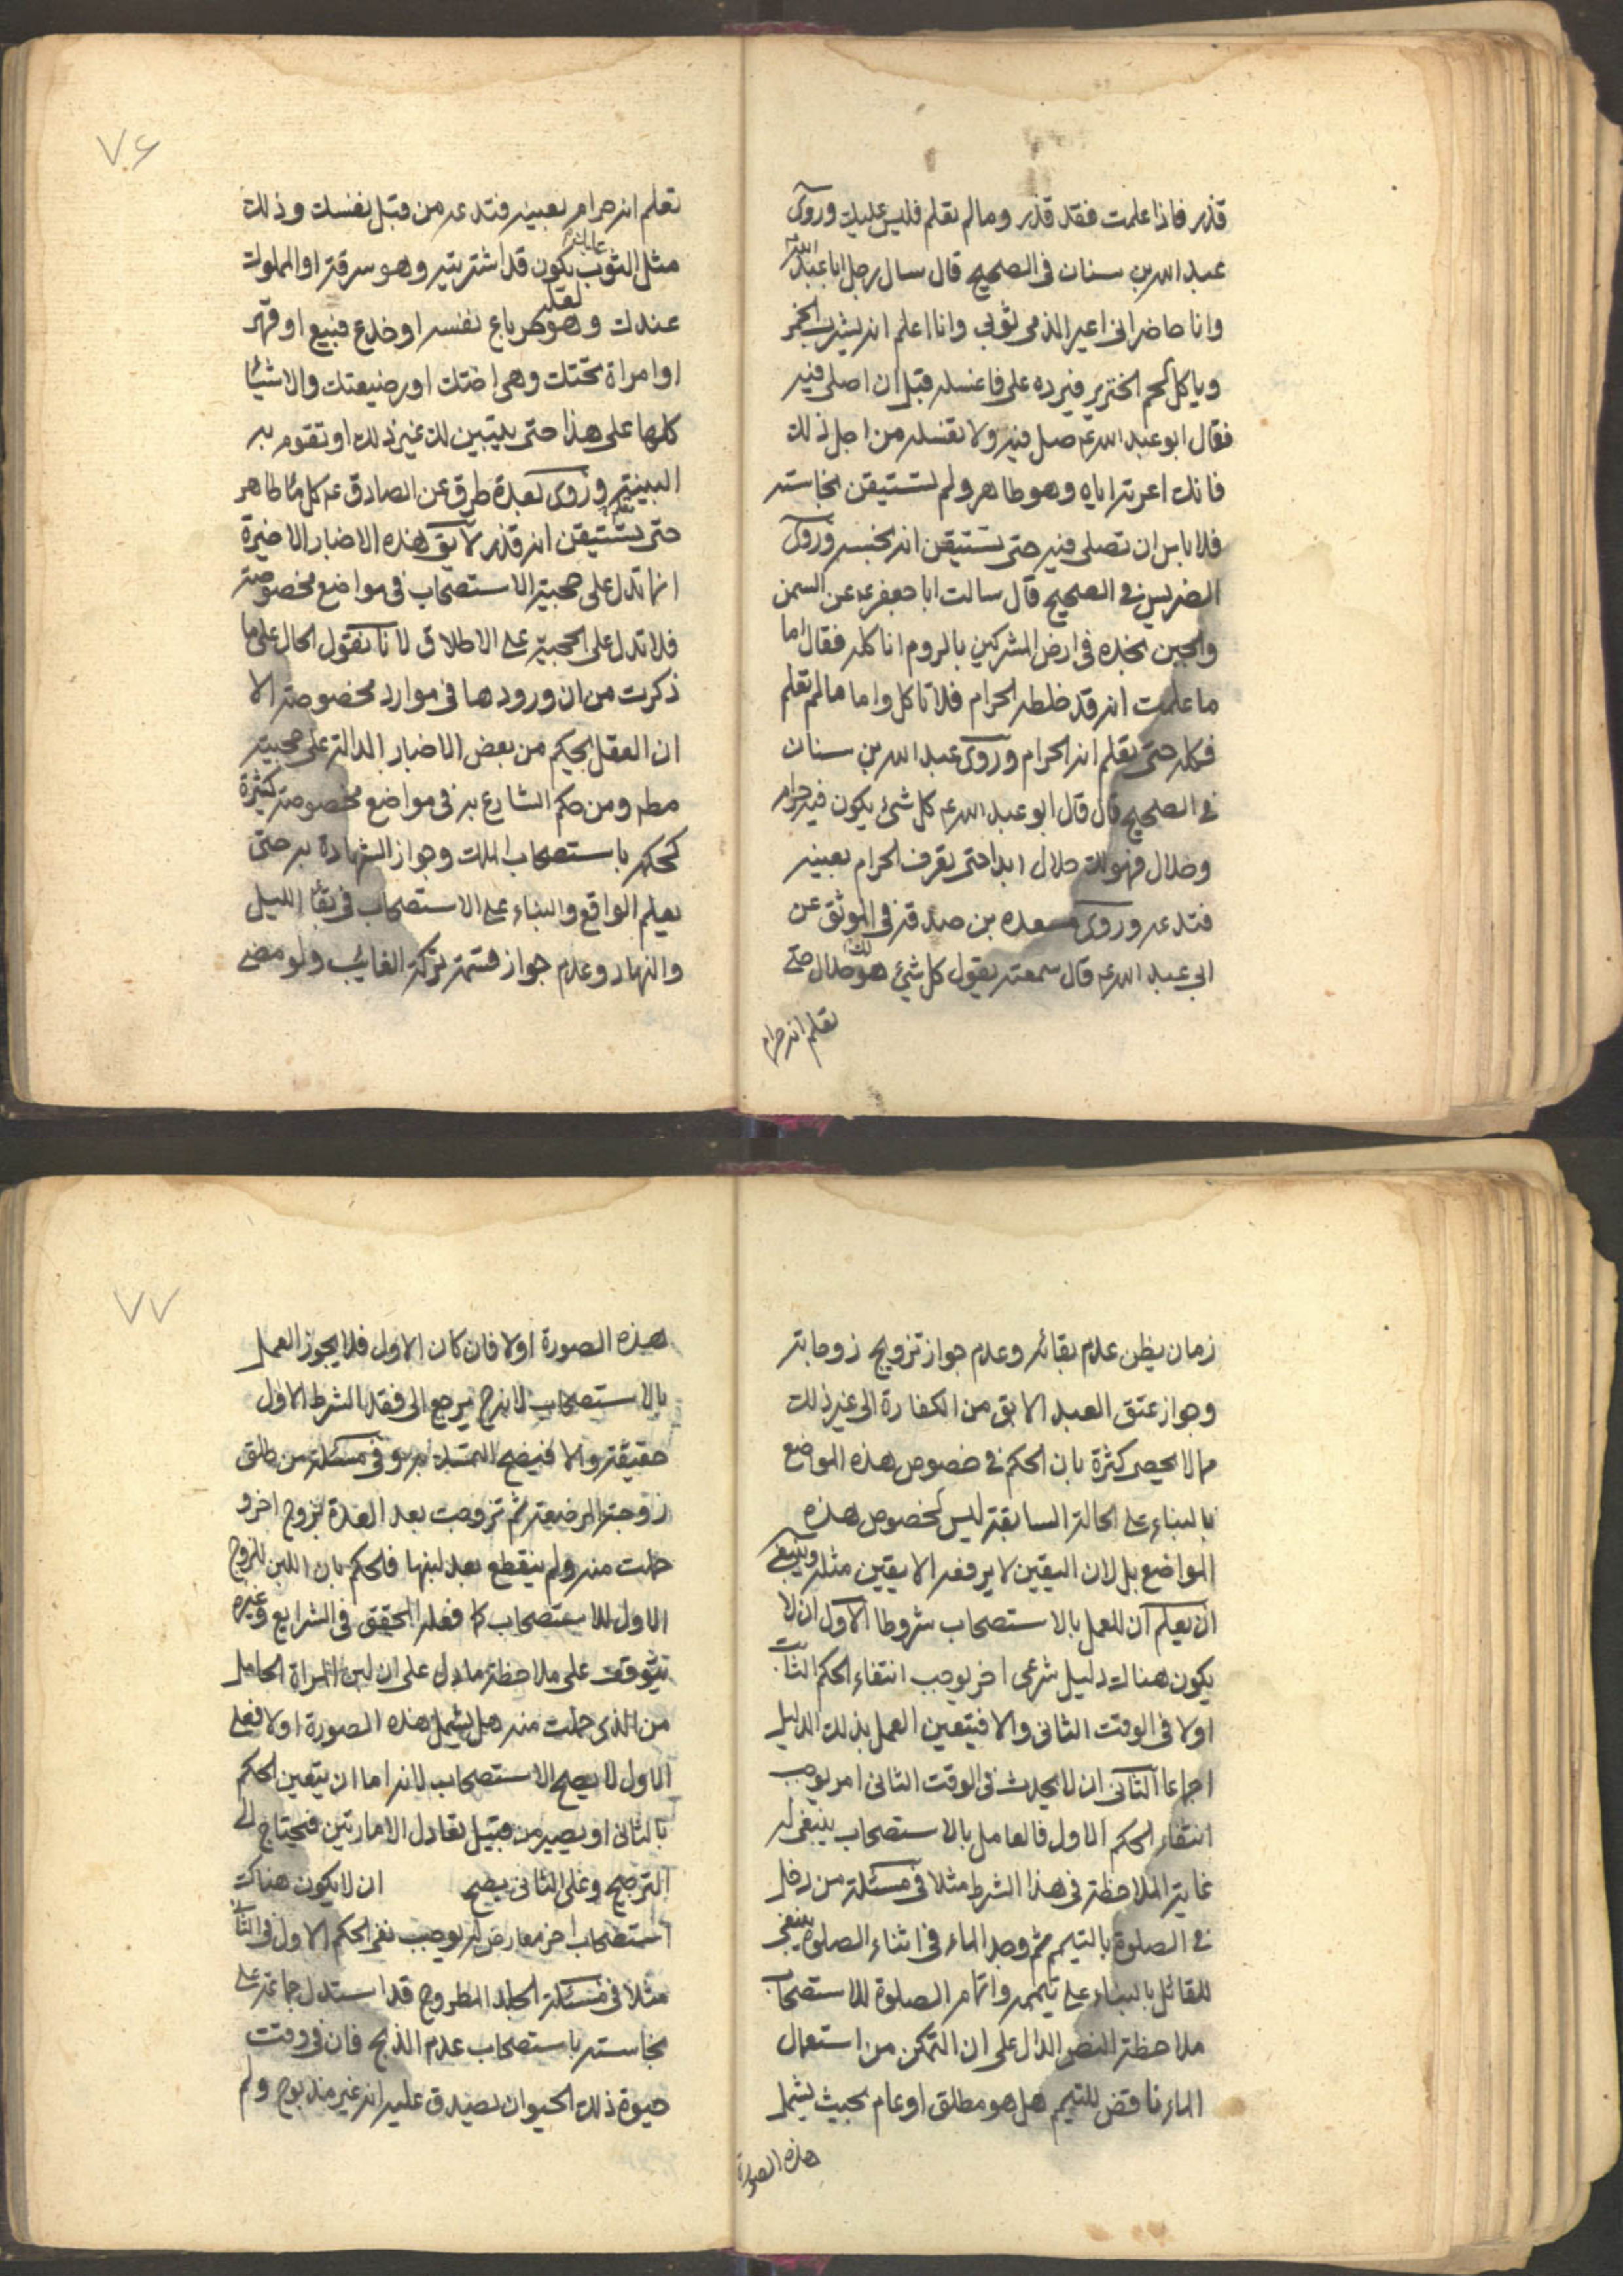 قذر فاذا علمت فقد قذر وما لم تعلم فليس عليك وروى
عبد الله بن سنان في الصحيح قال سال رجل ابا عبد الله ع
وانا حاضر اني اعير الذمي ثوبي وانا اعلم انه يشرب الخمر
وياكل لحم الخنزير فيرده على فاغسله قبل ان اصلى فيه
فقال ابو عبد الله ع صل فيه ولا تغسله من اجل ذلك
فانك اعرته اياه وهو طاهر ولم تستيقن نجاسته
فلا باس ان تصلى فيه حتى تستيقن انه نجسه وروى
الضريس في الصحيح قال سالت ابا جعفر ع عن السمن
والجبن نجده في ارض المشركين بالروم اناكله فقال اما
ما علمت انه قد خلطه الحرام فلا تاكل واما ما لم تعلم
فكله حتى تعلم انه الحرام وروى عبد الله بن سنان
في الصحيح قال قال ابو عبد الله ع كل شئ يكون فيه حرام
وحلال فهو لك حلال ابدا حتى تعرف الحرام بعينه
فتدعه وروى مسعده بن صدقة في الموثق عن
ابى عبد الله ع قال سمعته يقول كل شئ هو لك حلال حتى
تعلم انه حرام
٧٦
تعلم انه حرام بعينه فتدعه من قبل نفسك وذلك
مثل الثوب عليك يكون قد اشتريته وهو سرقة او المملوك
عندك وهو لعله حر باع نفسه او خدع فبيع او قهر
او امراة تحتك وهى اختك او رضيعتك والاشياء
كلها على هذا حتى يتبين لك غير ذلك او تقوم به
البينة وروى بعدة طرق عن الصادق ع كل ماء طاهر
حتى يستيقن انه قذر لا يق هذه الاخبار الاخيرة
انما تدل على حجية الاستصحاب في مواضع مخصوصة
فلا تدل على الحجية على الاطلاق لانا نقول الحال على ما
ذكرت من ان ورودها في موارد مخصوصة الا
ان العقل يحكم من بعض الاخبار الدالة على حجيته
مطه ومن حكم الشارع به في مواضع مخصوصة كثيرة
كحكمه باستصحاب الملك وجواز الشهادة به حتى
يعلم الواقع والبناء على الاستصحاب في بقاء الليل
والنهار وعدم جواز قسمة تركة الغائب ولو مضى
زمان يظن عدم بقائه وعدم جواز تزويج زوجاته
وجواز عتق العبد الابق من الكفارة الى غير ذلك
مما لا يحصى كثرة بان الحكم في خصوص هذه المواضع
بالبناء على الحالة السابقة ليس لخصوص هذه
المواضع بل لان اليقين لا يرفعه الا يقين مثله وينبغى
ان يعلم ان للعمل بالاستصحاب شروطا الاول ان لا
يكون هناك دليل شرعى اخر يوجب انتفاء الحكم الثابت
اولا في الوقت الثانى والا فيتعين العمل بذلك الدليل
اجماعا الثانى ان لا يحدث في الوقت الثانى امر يوجب
انتفاء الحكم الاول فالعامل بالاستصحاب ينبغى له
غاية الملاحظة في هذا الشرط مثلا في مسئلة من دخل
في الصلوة بالتيمم ثم وجد الماء في اثناء الصلوة ينبغى
للقائل بالبناء على تيممه واتمام الصلوة للاستصحاب
ملاحظة النص الدال على ان التمكن من استعمال
الماء ناقض للتيمم هل هو مطلق او عام بحيث يشمل
هذه الصورة
٧٧
هذه الصورة اولا فان كان الاول فلا يجوز العمل
بالاستصحاب لانه ح يرجع الى فقد الشرط الاول
حقيقة والا فيصح التمسك به وفي مسئلة من طلق
زوجته المرضعة ثم تزوجت بعد العدة بزوج اخر و
حملت منه ولم ينقطع بعد لبنها فالحكم بان اللبن للزوج
الاول للاستصحاب كما فعله المحقق في الشرايع وغيره
يتوقف على ملاحظة ما دل على ان لبن المراة الحامل
من الذى حملت منه هل يشمل هذه الصورة اولا فعلى
الاول لا يصح الاستصحاب لانه اما ان يتعين الحكم
بالثانى او يصير من قبيل تعادل الامارتين فيحتاج الى
الترجيح وعلى الثانى يصح ان لا يكون هناك
استصحاب اخر معارض له يوجب نفى الحكم الاول في الثانى
مثلا في مسئلة الجلد المطروح قد استدل جماعة على
نجاسته باستصحاب عدم الذبح فان في وقت
حيوة ذلك الحيوان يصدق عليه انه غير مذبوح ولم